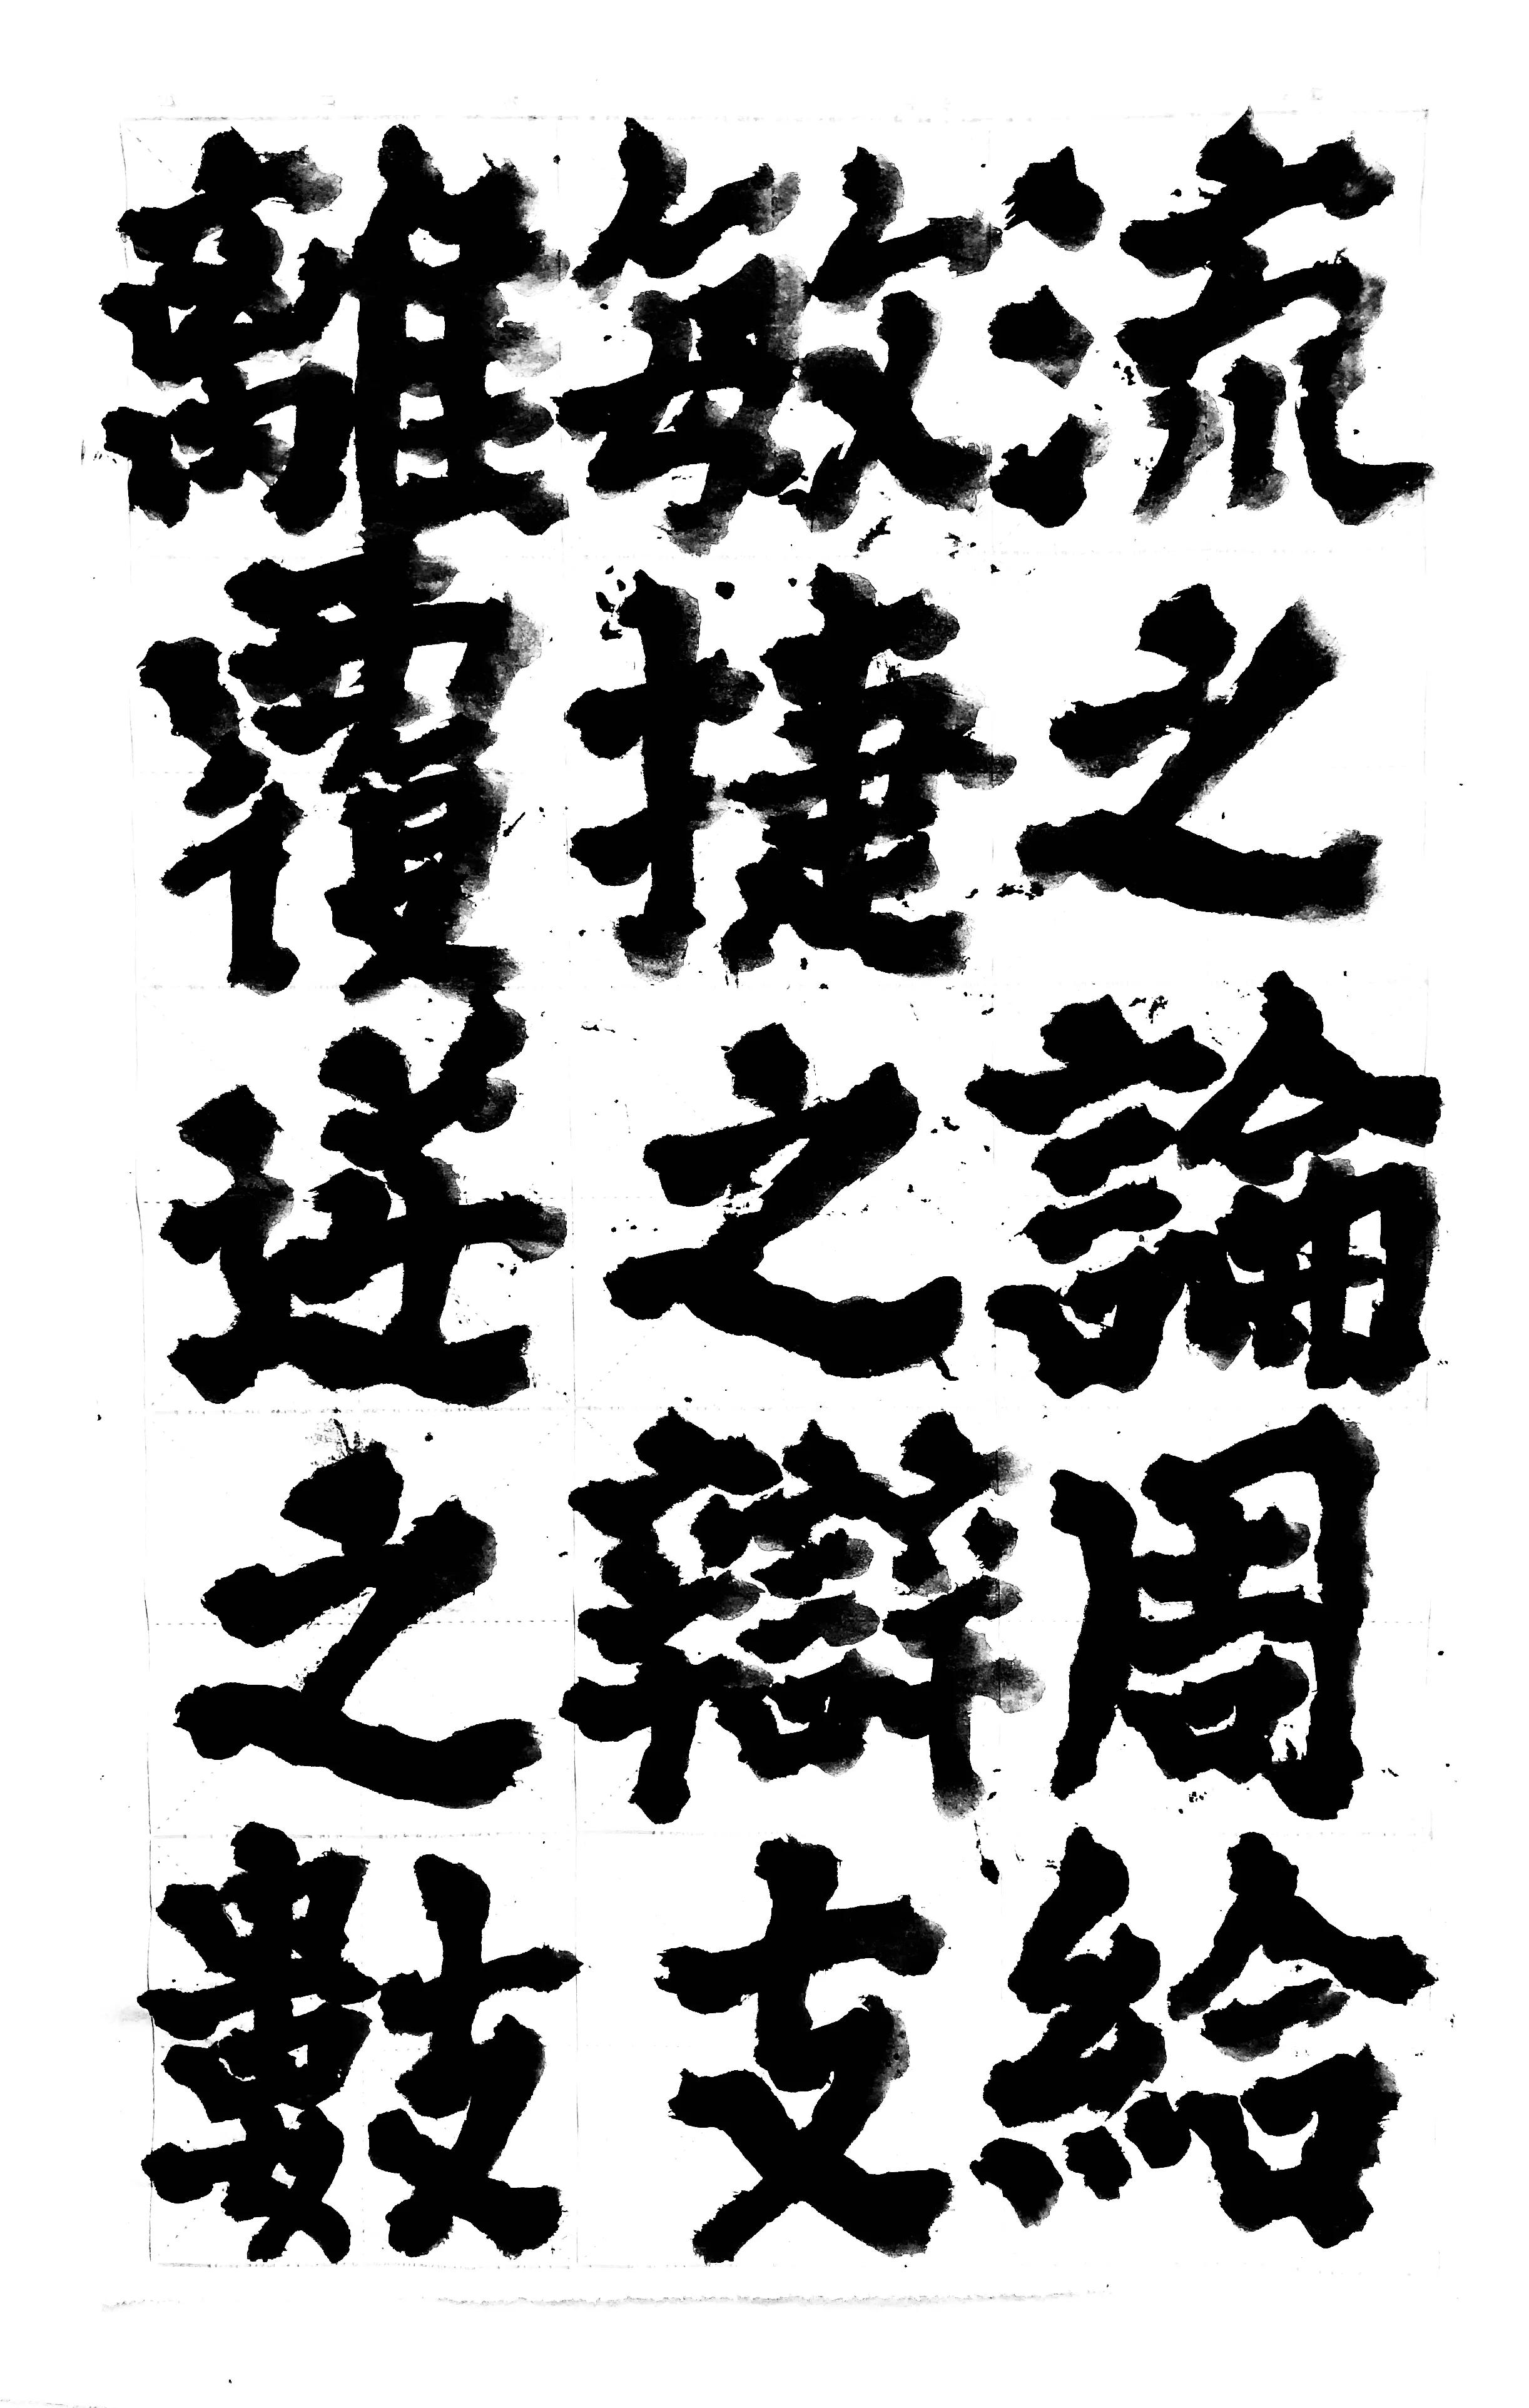 流之論周給
敏捷之辯支
離覆逆之數